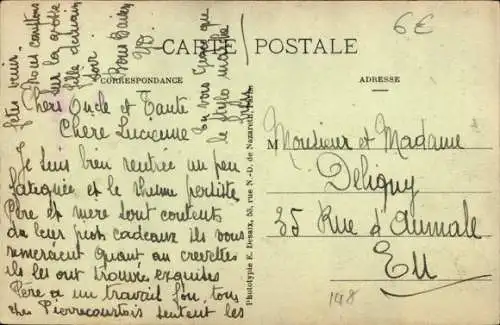 CARTE POSTALE
CORRESPONDANCE
ADRESSE
6€
Chers Oncle et Tante
Chère Lucienne
Je suis bien rentrée un peu
fatiguée et le rhume persiste
Père et mère sont contents
du leur petit cadeaux ils vous
remercient Quant au crevettes
ils les ont trouvé exquises
Père a un travail fou, tous
chez Pierrecourtois sentent les
fêtes venir.
Nous comptons
sur la
fille
soir
Bons Baisers
En vous
le stylo marche
M Monsieur et Madame
Deligny
35 Rue d'Aumale
Eu
148
Phototypie E. Desaix, 55, rue N.-D. de Nazareth, Paris